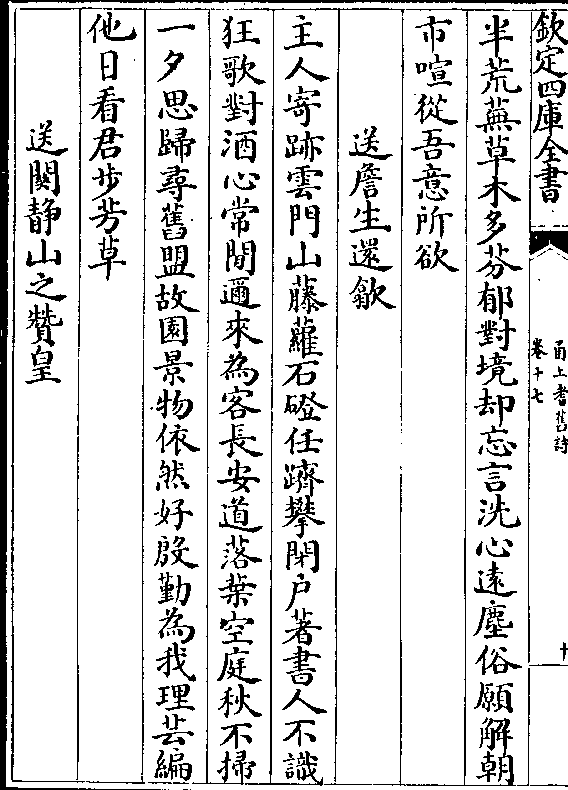 欽定四庫全書
甬上耆舊詩
卷十七
十
半荒蕪草木多芬郁對境却忘言洗心遠塵俗願解朝
市喧從吾意所欲
送詹生還歙
主人寄跡雲門山藤蘿石磴任躋攀閉户著書人不識
狂歌對酒心常閒邇來為客長安道落葉空庭秋不掃
一夕思歸尋舊盟故園景物依然好殷勤為我理芸編
他日看君步芳草
送闗静山之贊皇